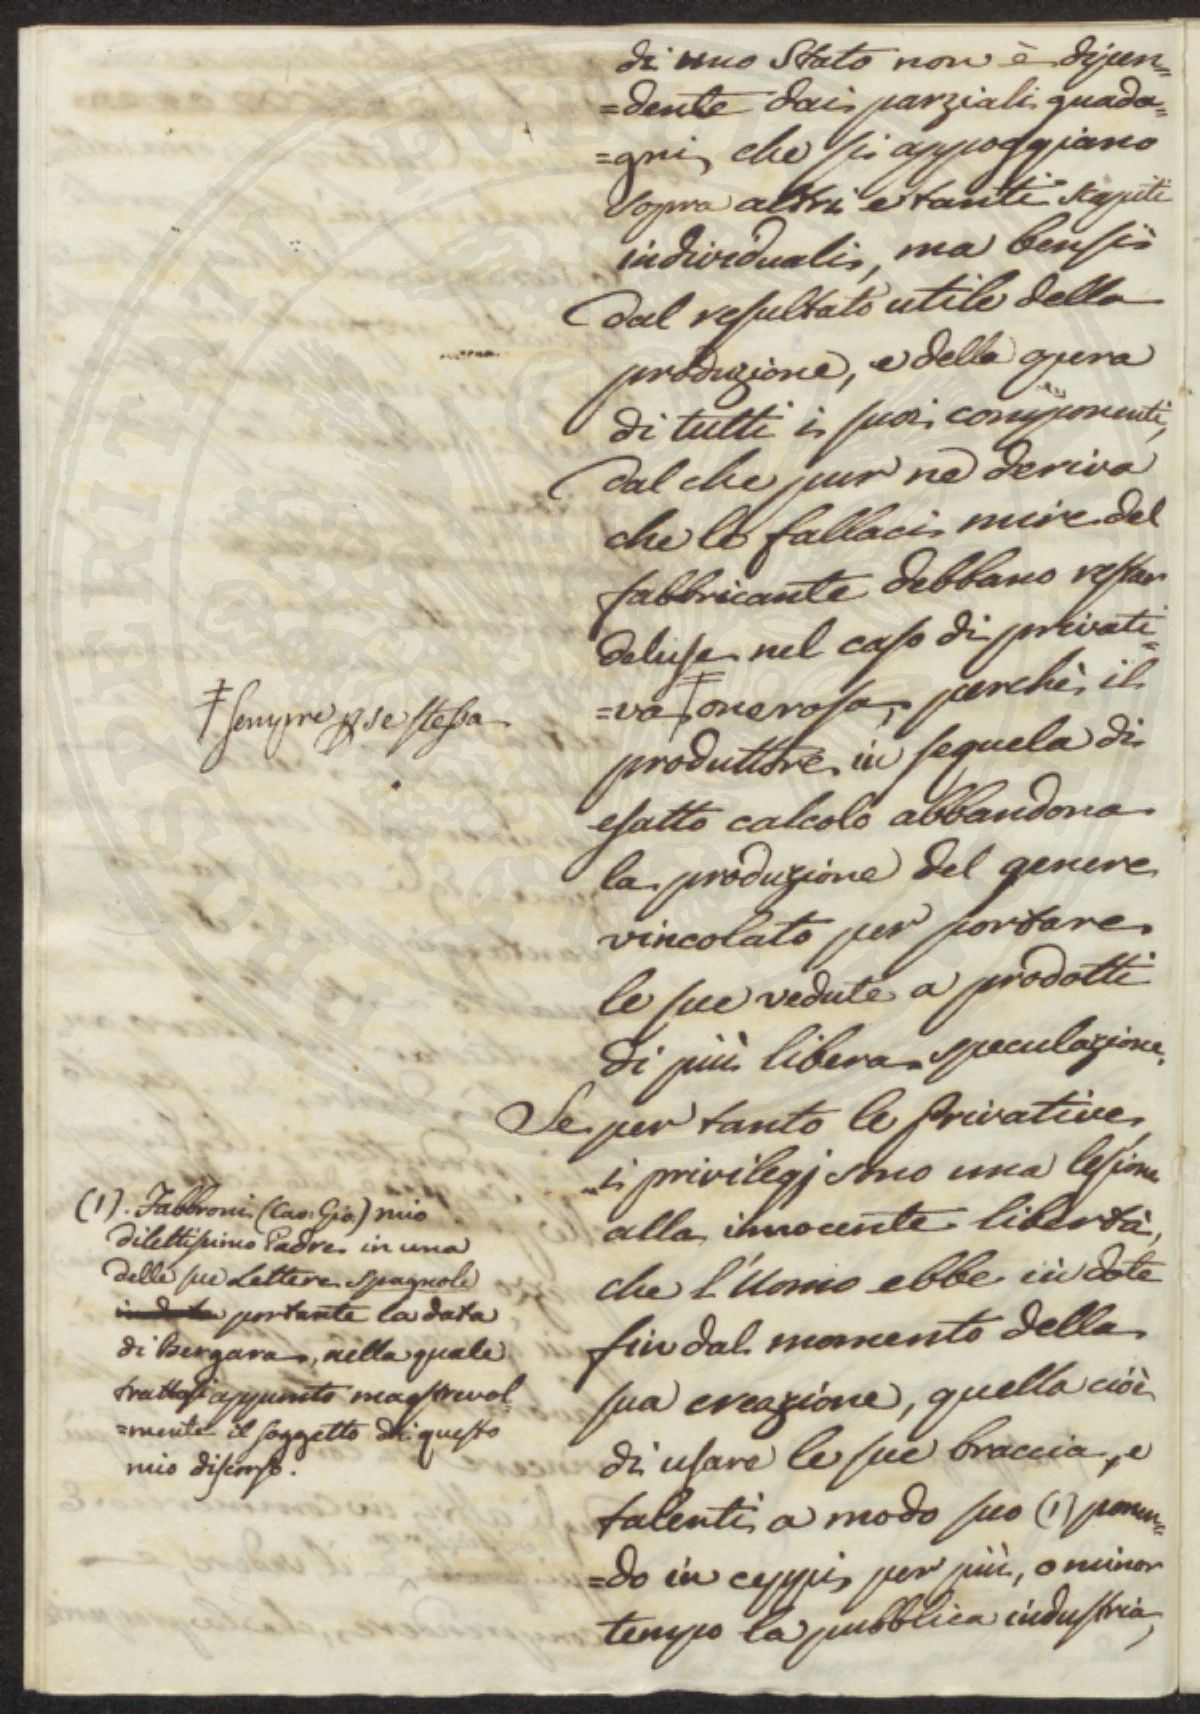 di uno Stato non è dipen=
=dente dai parziali guada=
=gni, che si appoggiano
sopra altri e tanti scapiti
individuali, ma bensì
dal resultato utile della
produzione, e della opera
di tutti i suoi componenti,
dal che pur ne deriva
che le fallaci mire del
fabbricante debbano restar
deluse nel caso di privati=
=va ‡ onerosa, perchè il
produttore in sequela di
esatto calcolo abbandona
la produzione del genere
vincolato per portare
le sue vedute a prodotti
di più libera speculazione.
Se per tanto le Privative,
i privilegj sono una lesione
alla innocente libertà,
che l'Uomo ebbe in dote
fin dal momento della
sua creazione, quella cioè
di usare le sue braccia, e
talenti a modo suo (1) ponen=
=do in ceppi per più, o minor
tempo la pubblica industria,
‡ sempre p se stessa
(1). Fabbroni (Cav. Gio.) mio
dilettissimo Padre in una
delle sue Lettere Spagnole
portante la data
di Bergara, nella quale
trattasi appunto maestrevol=
=mente il soggetto di questo
mio discorso.
PROSPERITATI PVBLI